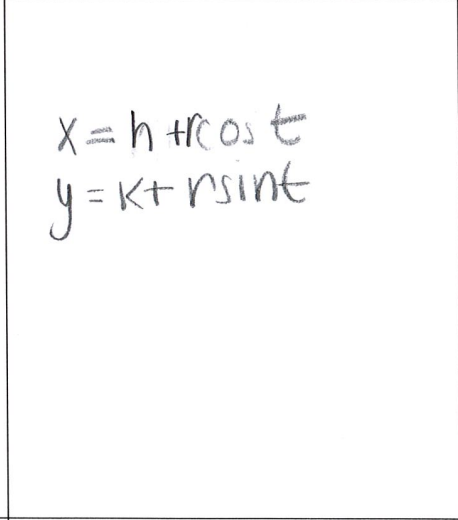 x = h + r cos t
y = k + r sin t